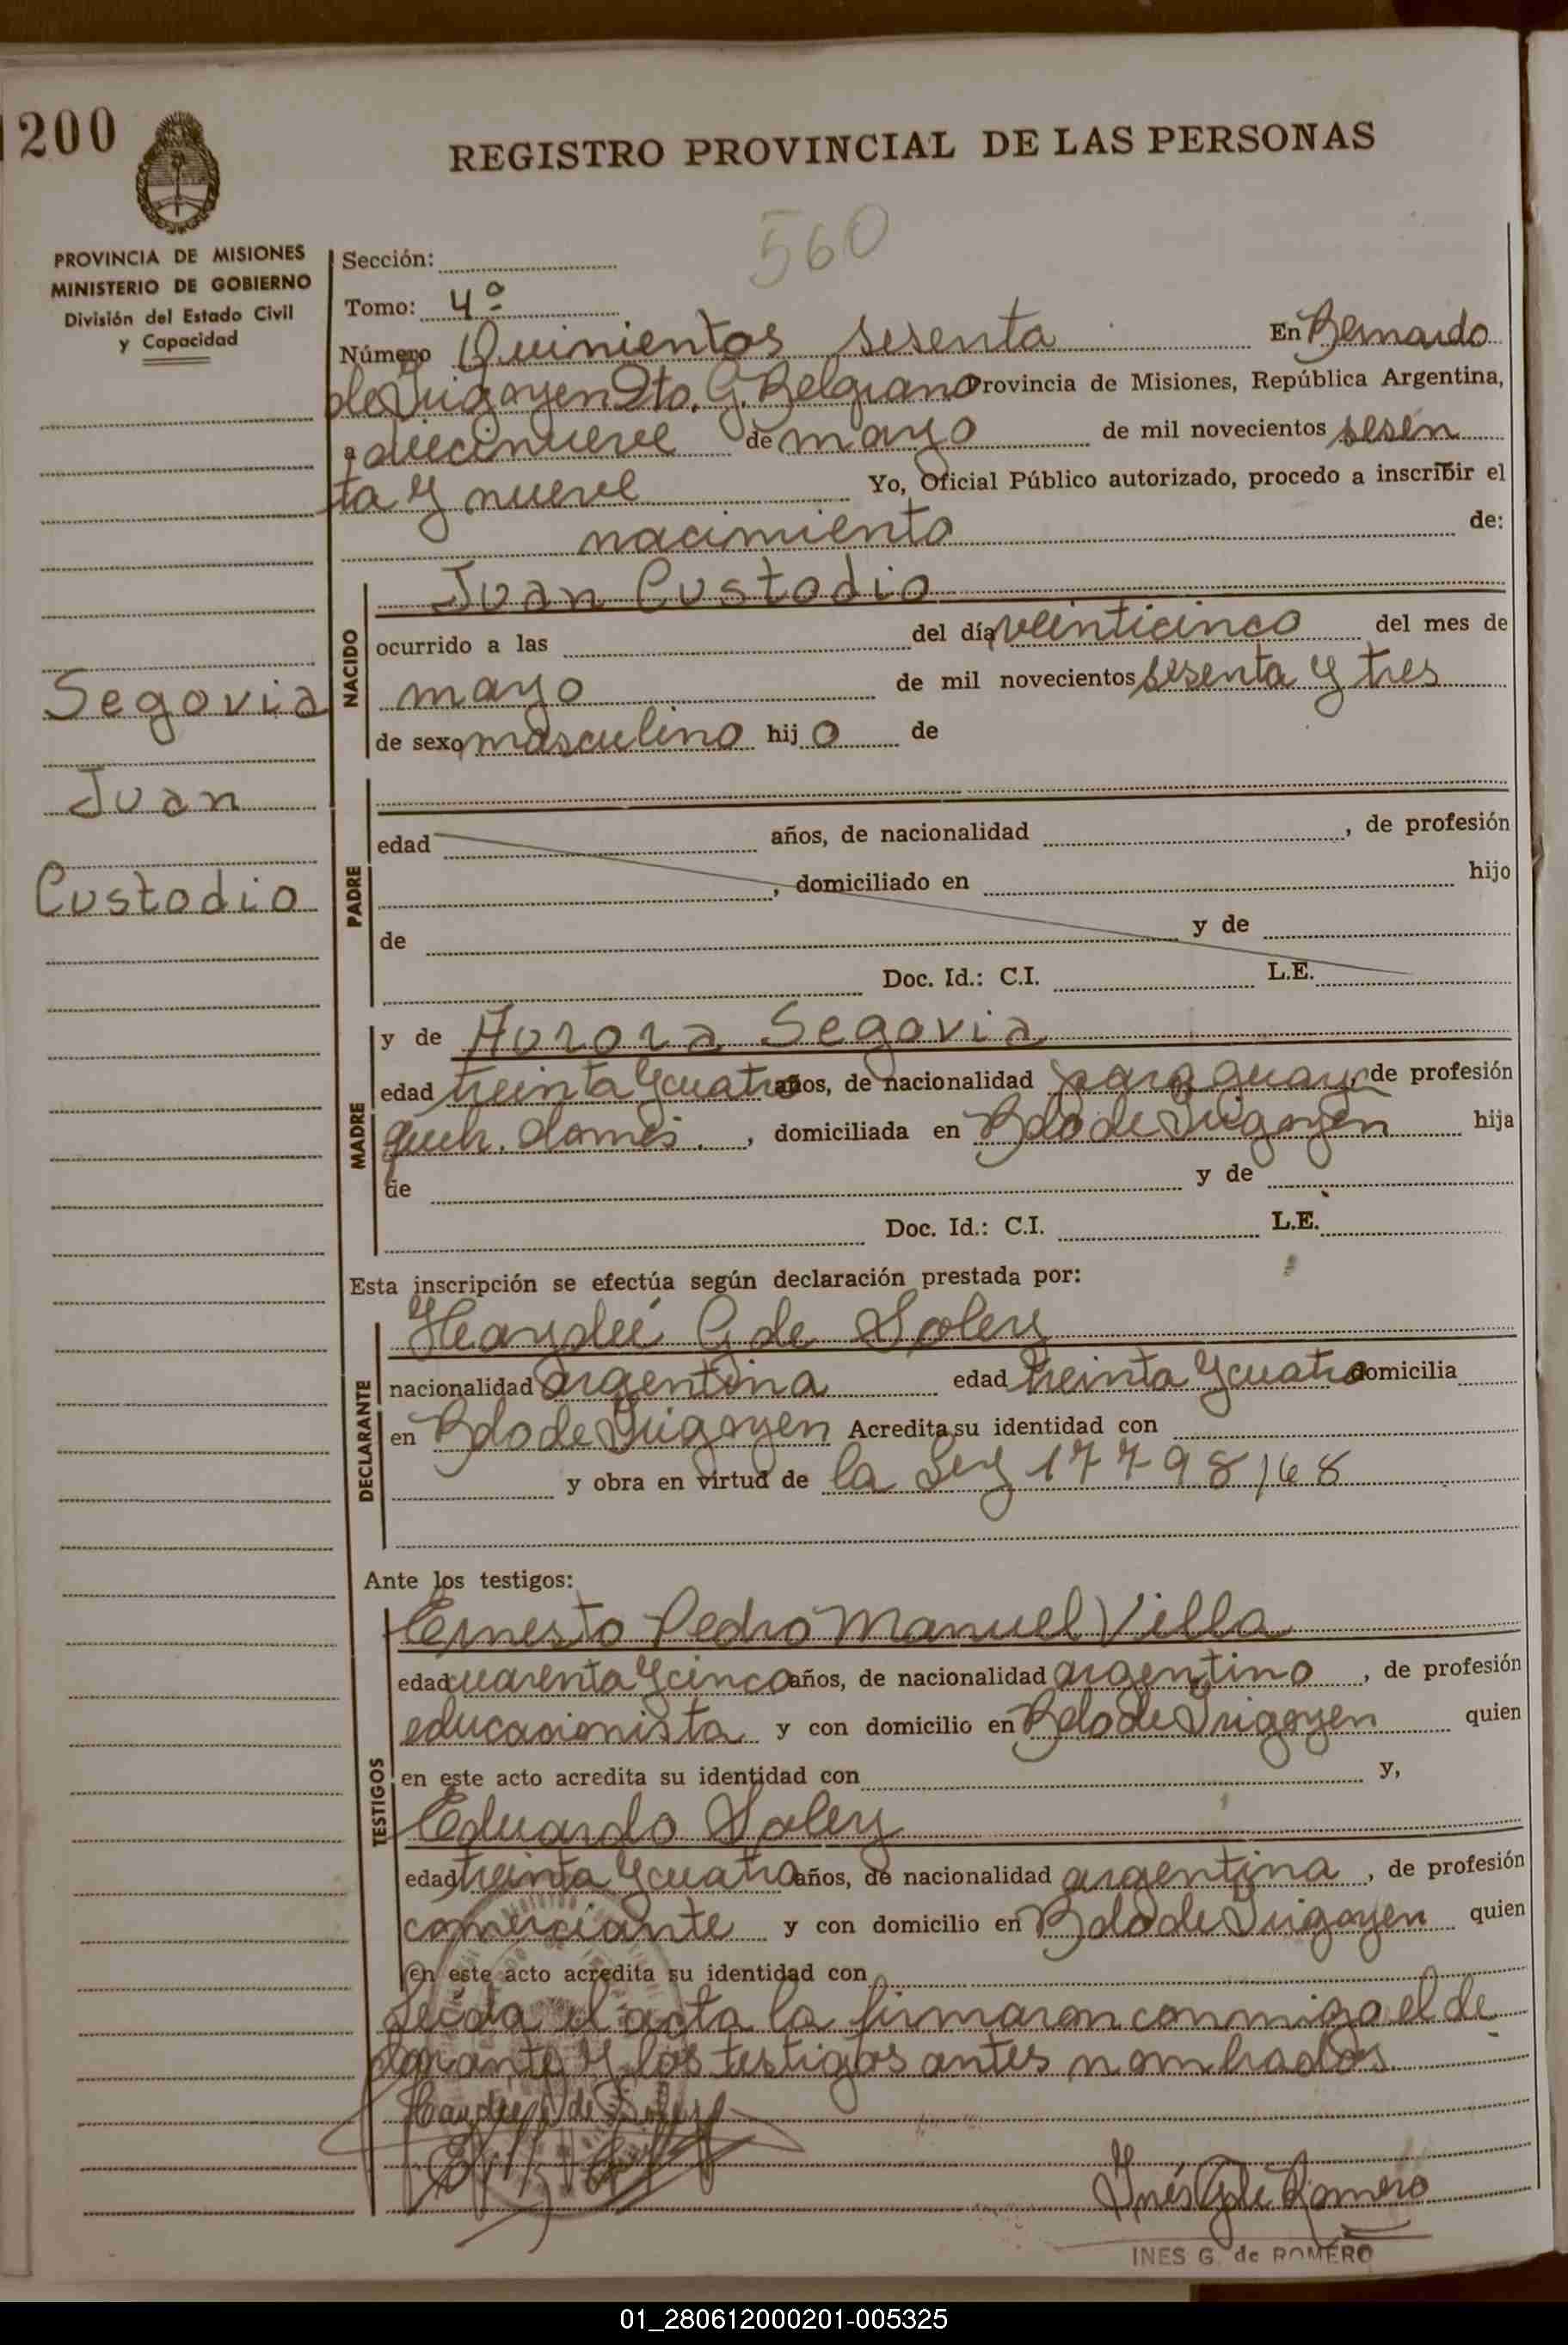 1200
REGISTRO PROVINCIAL DE LAS PERSONAS
PROVINCIA DE MISIONES
MINISTERIO DE GOBIERNO
División del Estado Civil
y Capacidad
560
Sección:
Tomo: 4º
Número Quinientos sesenta En Bernardo
de Irigoyen Dto. G. Belgrano Provincia de Misiones, República Argentina,
a diecinueve de mayo de mil novecientos sesen
ta y nueve Yo, Oficial Público autorizado, procedo a inscribir el
nacimiento de:
Segovia
Juan
Custodio
NACIDO
Juan Custodio
ocurrido a las del día veinticinco del mes de
mayo de mil novecientos sesenta y tres
de sexo masculino hijo de
PADRE
edad años, de nacionalidad , de profesión
, domiciliado en hijo
de y de
Doc. Id.: C.I. L.E.
MADRE
y de Aurora Segovia
edad treinta y cuatro años, de nacionalidad paraguaya, de profesión
queh. domés. , domiciliada en Bdo de Irigoyen hija
de y de
Doc. Id.: C.I. L.E.
Esta inscripción se efectúa según declaración prestada por:
DECLARANTE
Haydeé G de Soley
nacionalidad argentina edad treinta y cuatro domicilia
en Bdo de Irigoyen Acredita su identidad con
y obra en virtud de la Ley 17798/68
Ante los testigos:
TESTIGOS
Ernesto Pedro Manuel Villa
edad cuarenta y cinco años, de nacionalidad argentino , de profesión
educacionista y con domicilio en Bdo de Irigoyen quien
en este acto acredita su identidad con y,
Eduardo Soley
edad treinta y cuatro años, de nacionalidad argentina , de profesión
comerciante y con domicilio en Bdo de Irigoyen quien
en este acto acredita su identidad con
Leída el acta la firmaron conmigo el de
clarante y los testigos antes nombrados
Haydeé G de Soley
Inés G de Romero
INES G. de ROMERO
01_280612000201-005325